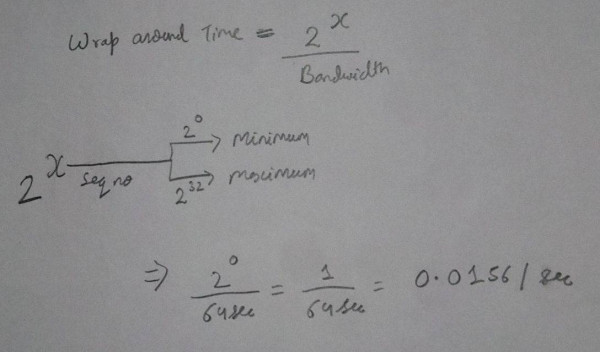 Wrap around Time = 2^x / Bandwidth
2^x seq no
2^0 → Minimum
2^32 → Maximum
⇒ 2^0 / 64sec = 1 / 64sec = 0.0156 / sec